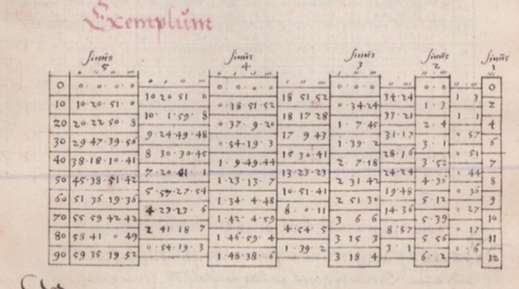 Exemplum
sinus sinus sinus sinus sinus
5 4 3 2 1
0 0 . 0 . 0 . 0 0 . 0 . 0 . 0 0 . 0 . 0 0 . 0 0
10 20 51 0 18 51 52 34.24 1 3
10 10.20.51.0 0.18.51.52 0 34.24 1.3 1
10 1.59.8 18 17 28 33.21 1
20 20.22 50 8 0 37.9.20 1.7 45 2.4 4
9.24.49.48 17 9 43 31.17 0 57
30 29.47.39.56 0.54.19.3 1.39.2 3.1 6
8 30.30.45 15 30 41 28.16 0 51
40 38.18.10.41 1.9.49.44 2.7.18 3.52 7
7.20.41 1 13.23.23 24.24 44
50 45.38.51.42 1.23.13.7 2 31 42 8
5 57.27 54 10.51.41 19.48 0 36
60 51 36 19.36 1.34.4.48 2 51 30 5.12 9
4.23.23.6 8.0.11 14.36 0 27
70 55 59 42 42 1.42.4.59 3 6 6 5.39 10
2 41 18 7 4.54 5 8.57 0 17
80 58 41 0 49 1.46.59.4 3 15 3 5 56 11
0.54.19.3 1.39 2 3.1 0.6
90 59 35 19 52 1.48.38.6 3 18 4 6.2 12